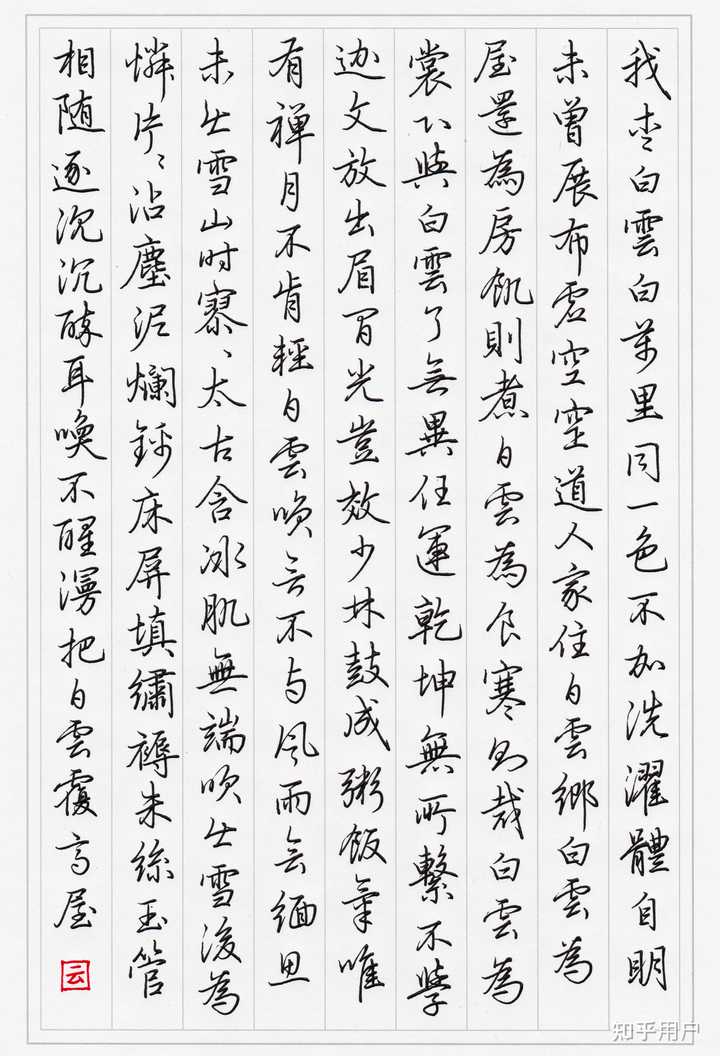 我白雲白萬里同一色不加洗濯體自明
未曾展布虛空窒道人家住白雲鄉白雲為
屋還為房飢則煮白雲為食寒則裁白雲為
裳與白雲了無異任運乾坤無所繫不學
迦文放出眉間光豈效少林鼓成粥飯氣唯
有禪月不肯輕白雲喚不与風雨會緬思
未出雪山时寥〻太古含冰肌無端吹出雪後為
憐片〻沾塵泥爛錦床屏填繡褥朱絲玉管
相随逐沉沉醉耳喚不醒漫把白雲覆高屋
云
知乎用户